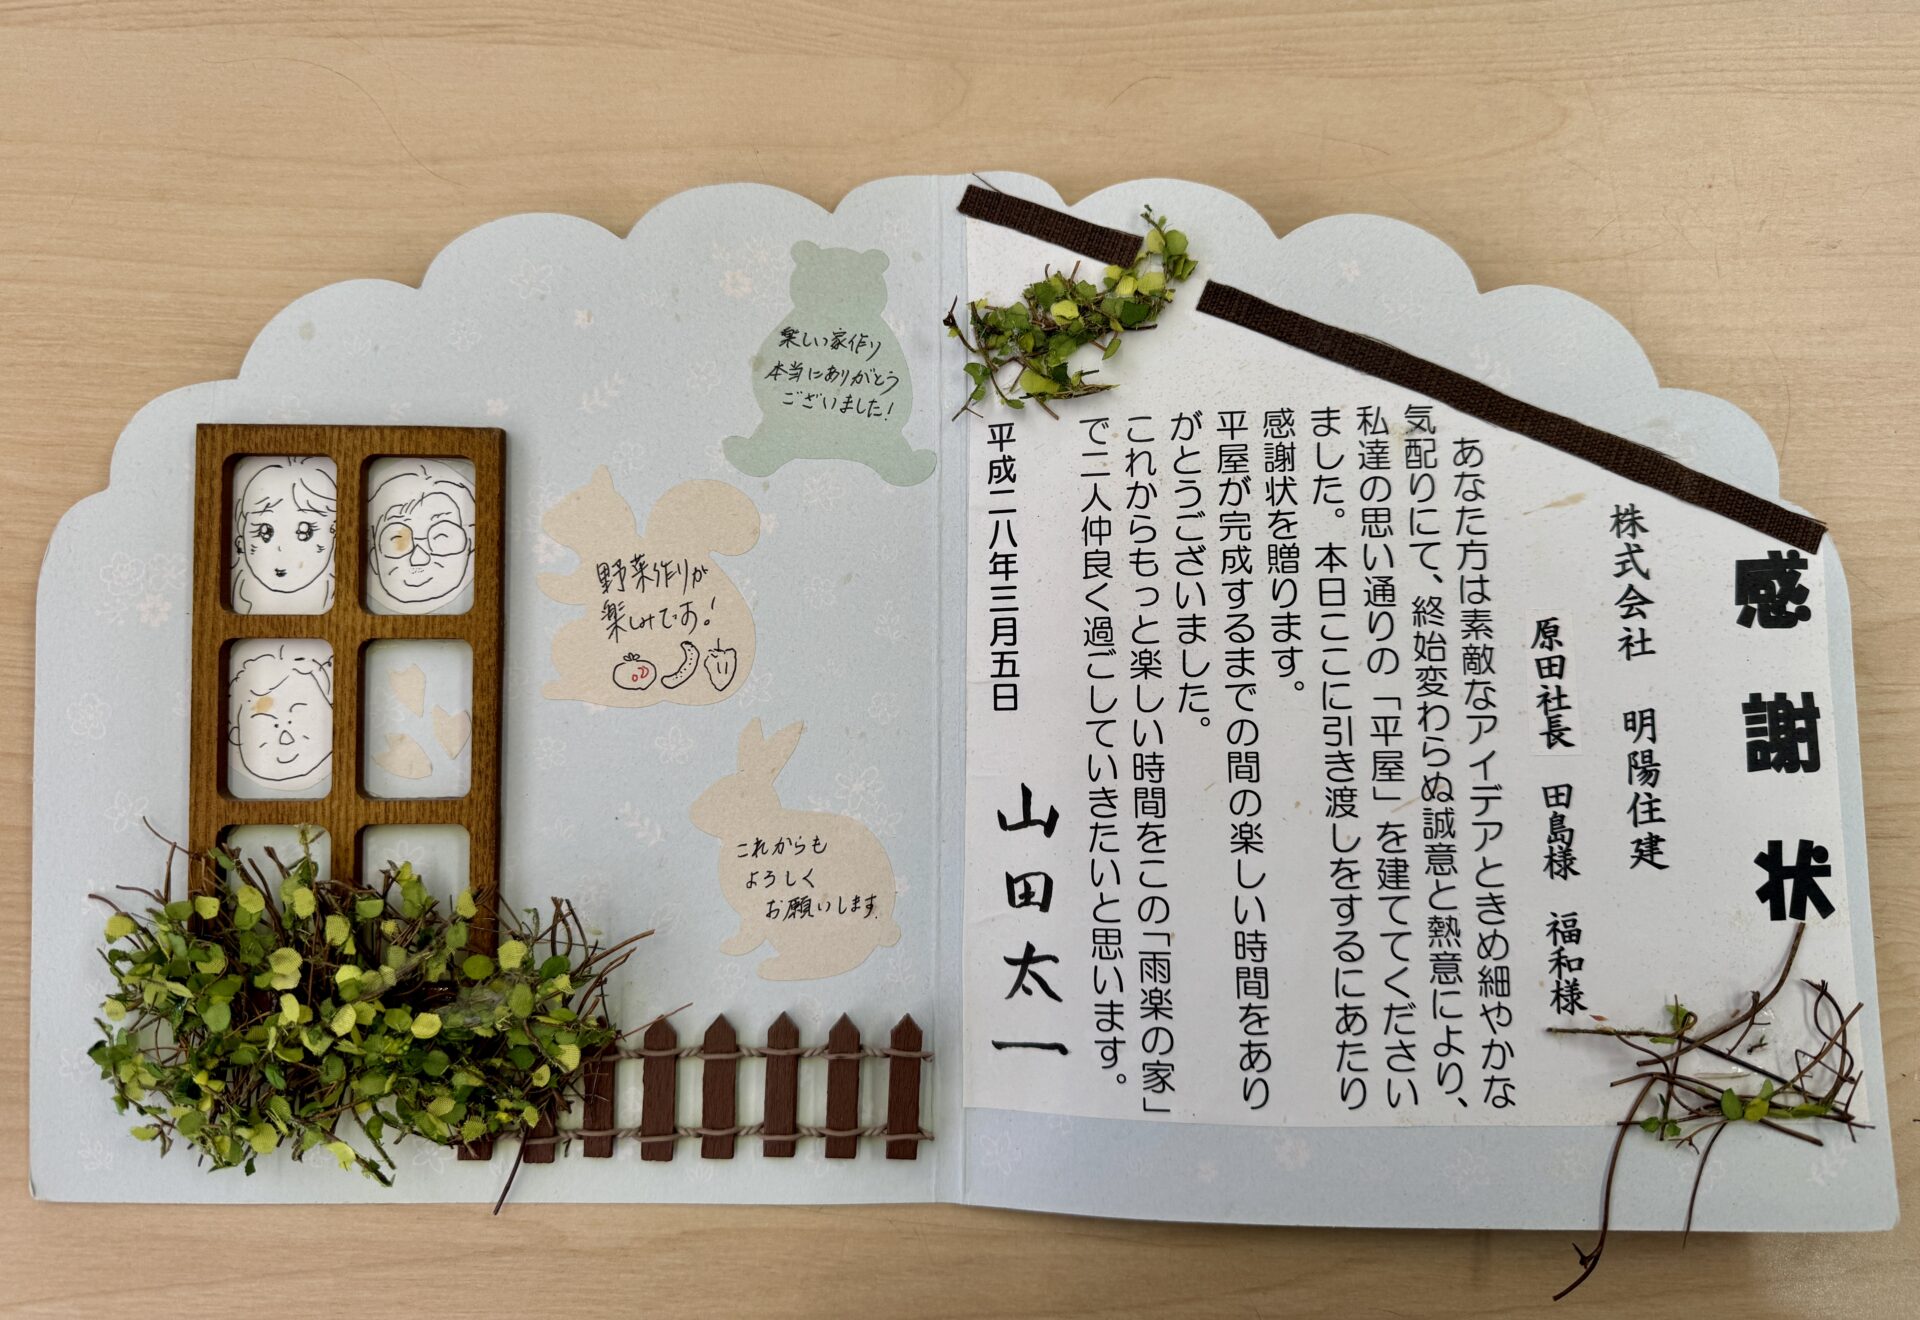 感謝状
株式会社 明陽住建
原田社長 田島様 福和様
あなた方は素敵なアイデアときめ細やかな
気配りにて、終始変わらぬ誠意と熱意により、
私達の思い通りの「平屋」を建ててください
ました。本日ここに引き渡しをするにあたり
感謝状を贈ります。
平屋が完成するまでの間の楽しい時間をあり
がとうございました。
これからもっと楽しい時間をこの「雨楽の家」
で二人仲良く過ごしていきたいと思います。
平成二八年三月五日
山田太一
楽しい家作り
本当にありがとう
ございました!
野菜作りが
楽しみです!
これからも
よろしく
お願いします